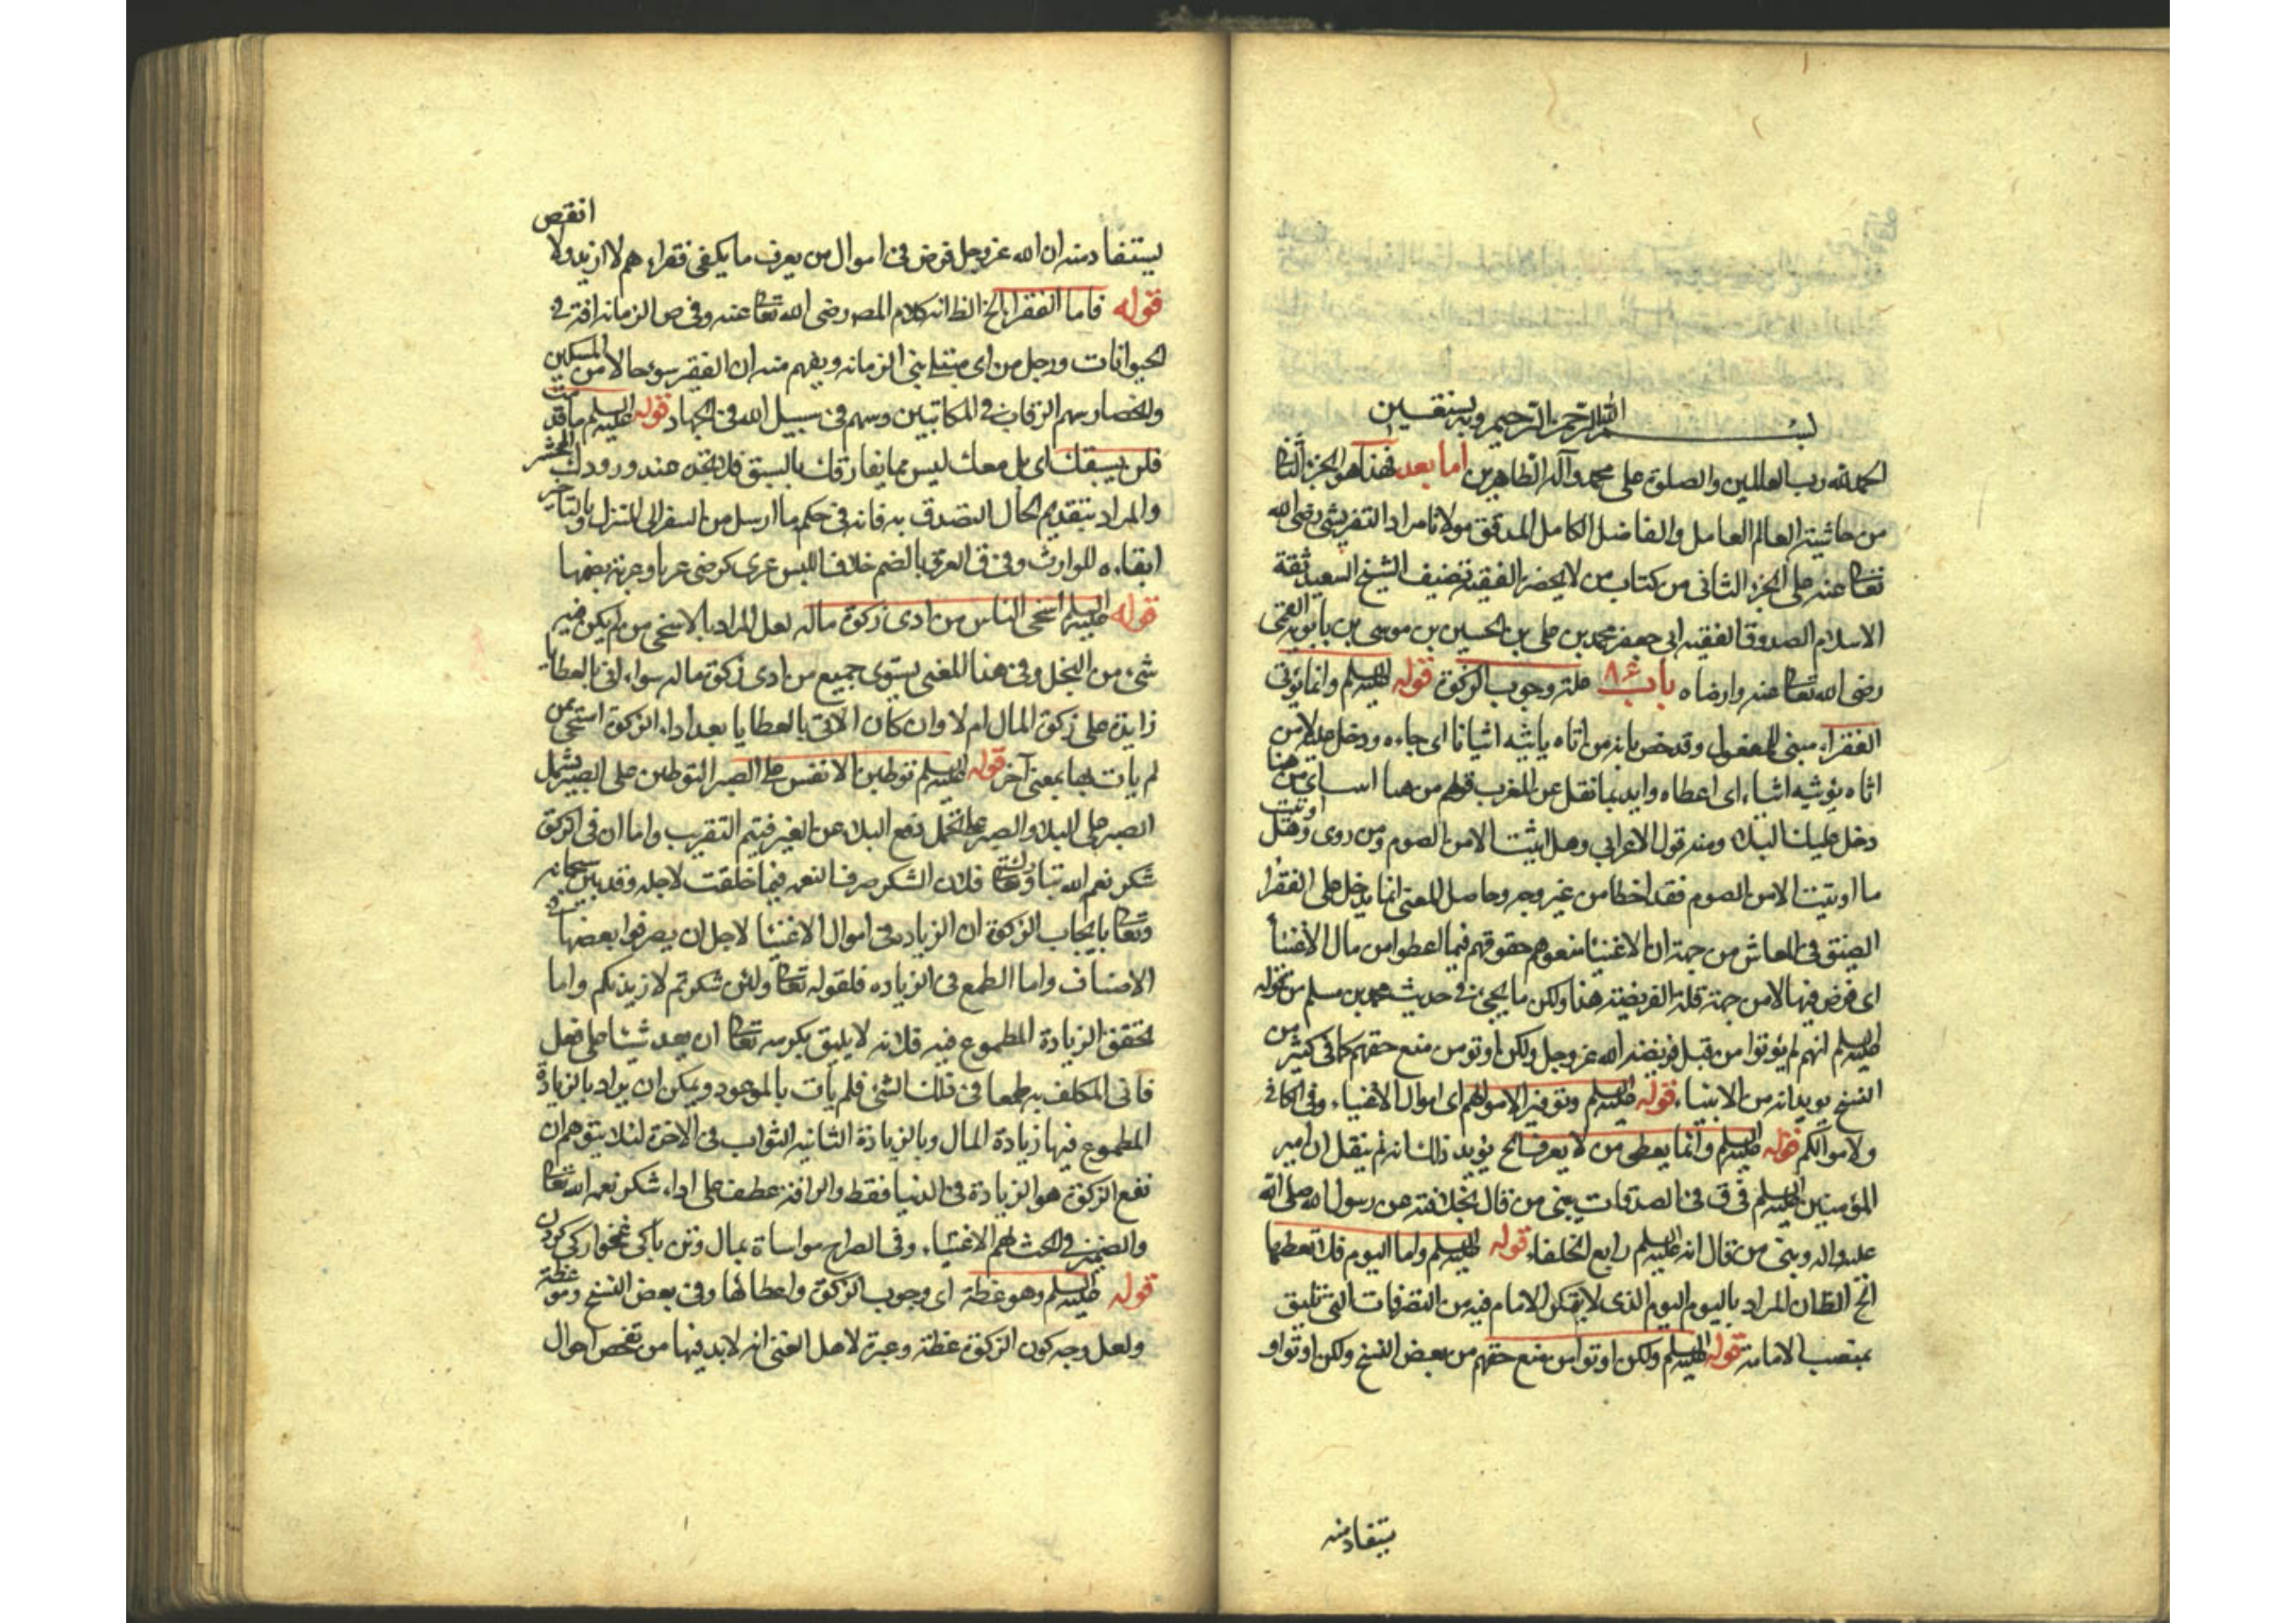 بسم الله الرحمن الرحيم وبه نستعين
الحمد لله رب العالمين والصلوة على محمد وآله الطاهرين اما بعد فهذا هو الجزء الثانى
من حاشية العالم العامل والفاضل الكامل المدقق مولانا مراد التفريشى رضى الله
تعالى عنه على الجزء الثانى من كتاب من لا يحضره الفقيه تصنيف الشيخ السعيد ثقة
الاسلام الصدوق الفقيه ابى جعفر محمد بن على بن الحسين بن موسى بن بابويه القمى
رضى الله تعالى عنه وارضاه باب علة وجوب الزكوة قوله عليه السلم وانما يؤتى
الفقراء مبنى للمفعول وقد خص بانه من اتاه ياتيه اتيانا اى جاءه ودخل عليه لا من
اتاه يؤتيه ايتاء اى اعطاه وايد بما نقل عن المغرب قولهم من هنا اى من هنا
دخل عليك البلاء ومنه قول الاعرابى وهل اتيت الا من الصوم ومن روى وهل اوتيت
ما اوتيت الا من الصوم فقد اخطا من غير وجه وحاصل المعنى انما يدخل على الفقراء
الضيق فى المعاش من جهة ان الاغنيا منعوهم حقوقهم فيما اعطوا من مال الاغنياء
اى فرض فيها لا من جهة قلة الفريضة هذا ولكن ما يجئ فى حديث محمد بن مسلم من قوله
عليه السلم انهم لم يؤتوا من قبل فريضة الله عز وجل ولكن اوتو من منع حقهم كما فى كثير من
النسخ يؤيد انه من الايتاء قوله عليه السلم وتوفيرا لاموالهم اى اموال الاغنياء وفى الكافى
ولاموالكم قوله عليه السلم وانما يعطى من لا يعرف الخ يؤيد ذلك انه لم ينقل ان امير
المؤمنين عليه السلم فرق فى الصدقات بين من قال بخلافته عن رسول الله صلى الله
عليه واله وبين من قال انه عليه السلم رابع الخلفاء قوله عليه السلم واما اليوم فلا تعطها
الخ الظ ان المراد باليوم اليوم الذى لا يتمكن الامام فيه من التصرفات التى تليق
بمنصب الامامة قوله عليه السلم ولكن اوتوا من منع حقهم من بعض النسخ ولكن اوتوا و
يستفاد منه
يستفاد منه ان الله عز وجل فرض فى اموال من يعرف ما يكفى فقراءهم لا ازيد ولا انقص
قوله فاما الفقراء الخ الظ انه كلام المص رضى الله تعالى عنه وفى ص الزمانة افة فى
الحيوانات ورجل زمن اى مبتلى بين الزمانة ويفهم منه ان الفقير سوء حالا من المسكين
وانحصار سهم الرقاب فى المكاتبين وسهم فى سبيل الله فى الجهاد قوله عليه السلم ما قدمت
فلن يسبقك اى بل معك ليس مما يفارقك بالسبق عند ورودك المحشر
والمراد بتقديم المال التصدق به فانه فى حكم ما ارسل من السفر الى المنزل وبالتاخير
ابقاءه للوارث وفى ق العرى بالضم خلاف اللبس عرى كرضى عريا وعرية بضمهما
قوله عليه السلم اسخى الناس من ادى زكوة ماله لعل المراد بالاسخى من لم يكن فيه
شئ من البخل وفى هذا المعنى يستوى جميع من ادى زكوة ماله سواء اتى بالعطايا
زايدة على زكوة المال ام لا وان كان الاتى بالعطايا بعد اداء الزكوة اسخى ممن
لم يات بها بمعنى آخر قوله عليه السلم توطين الانفس على الصبر التوطين على الصبر يشمل
الصبر على البلاء والصبر على تحمل دفع البلاء عن الغير فيتم التقريب واما ان فى الزكوة
شكر نعم الله تبارك وتعالى فلان الشكر صرف النعم فيما خلقت لاجله وقد بين سبحانه
وتعالى بايجاب الزكوة ان الزيادة فى اموال الاغنيا لاجل ان يصرفوا بعضها فى
الاصناف واما الطمع فى الزياده فلقوله تعالى ولئن شكرتم لازيدنكم واما
تحقق الزيادة المطموع فيه فلانه لا يليق بكرمه تعالى ان يعد شيئا على فعل
فاتى المكلف به طمعا فى ذلك الشئ فلم يات بالموعود ويمكن ان يراد بالزيادة
المطموع فيها زيادة المال وبالزيادة الثانية الثواب فى الاخرة لئلا يتوهم ان
نفع الزكوة هو الزيادة فى الدنيا فقط والرافة عطف على اداء شكر نعم الله تعالى
والضمير فى الحث لهم الاغنياء وفى الصراح مواساة بمال وتن با كى غمخواركى كردن
قوله عليه السلم وهو عظة اى وجوب الزكوة واعطائها وفى بعض النسخ وموعظة
ولعل وجه كون الزكوة عظة وعبرة لاهل الغنى انه لا بد فيها من تفحص احوال